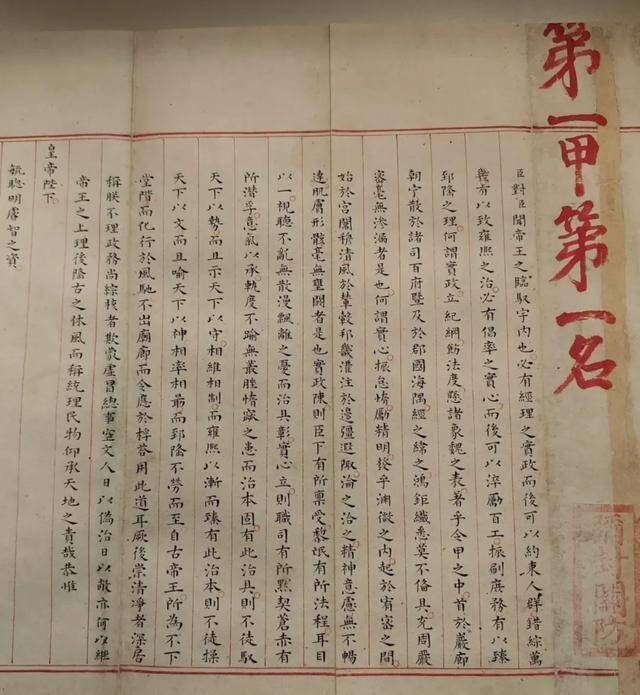 第一甲第一名
臣對臣聞帝王之臨馭宇內也必有經理之實政而後可以約束人群錯綜萬
幾有以致雍熙之治必有倡率之實心而後可以淬勵百工振刷庶務有以臻
郅隆之理何謂實政立紀綱飭法度懸諸象魏之表著乎令甲之中首於巖廊
朝宁散於諸司百府暨及於郡國海隅經之緯之鴻鉅纖悉莫不備具充周嚴
密毫無滲漏者是也何謂實心振怠惰勵精明發乎淵微之內起於宥密之間
始於宮闈穆清風於輦轂邦畿灌注於邊疆遐陬淪之洽之精神意慮無不暢
達肌膚形骸毫無壅閼者是也實政陳則臣下有所稟受黎氓有所法程耳目
以一視聽不亂無散漫飄離之憂而治具彰實心立則職司有所默契蒼赤有
所潛孚意氣以承軌度不踰無叢脞惰窳之患而治本固有此治具則不徒馭
天下以勢而且示天下以守相維相制而雍熙以漸而臻有此治本則不徒操
天下以文而且喻天下以神相率相勗而郅隆不勞而至自古帝王所為不下
堂階而化行於風馳不出廟廊而令應於桴答用此道耳厥後崇清淨者深居
稱朕不理政務尚綜核者欺蒙虛冒總事空文人日以偽治日以敝亦何以繼
帝王之上理後隆古之休風而稱統理民物仰承天地之責哉恭惟
皇帝陛下
毓聰明睿智之資
關防